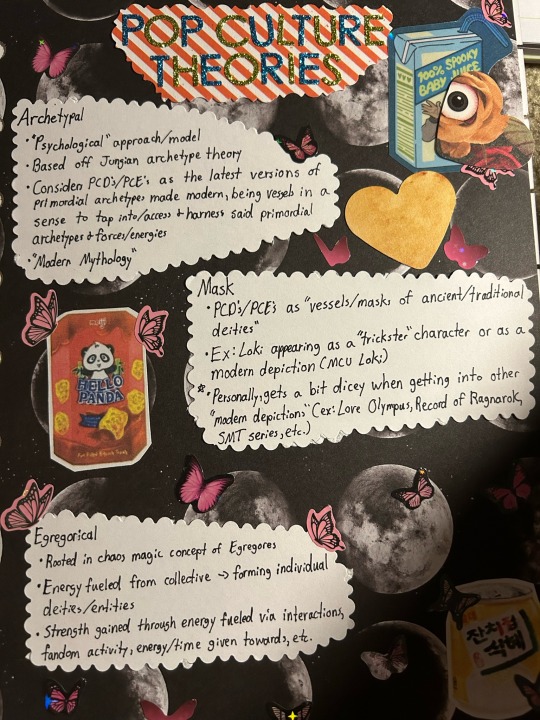 POP CULTURE
THEORIES
100% SPOOKY
BABY JUICE
Archetypal
• "Psychological" approach/model
• Based off Jungian archetype theory
• Consider PCD's/PCE's as the latest versions of
primordial archetypes made modern, being vessels in a
sense to tap into/access & harness said primordial
archetypes & forces/energies
• "Modern Mythology"
Mask
• PCD's/PCE's as "vessels/masks of ancient/traditional
deities"
• Ex: Loki appearing as a "trickster" character or as a
modern depiction (MCU Loki)
* • Personally, gets a bit dicey when getting into other
"modern depictions" (ex: Lore Olympus, Record of Ragnarok,
SMT series, etc.)
HELLO
PANDA
Egregorical
• Rooted in chaos magic concept of Egregores
• Energy fueled from collective → forming individual
deities/entities
• Strength gained through energy fueled via interactions,
fandom activity, energy/time given towards, etc.
잔치집
식혜